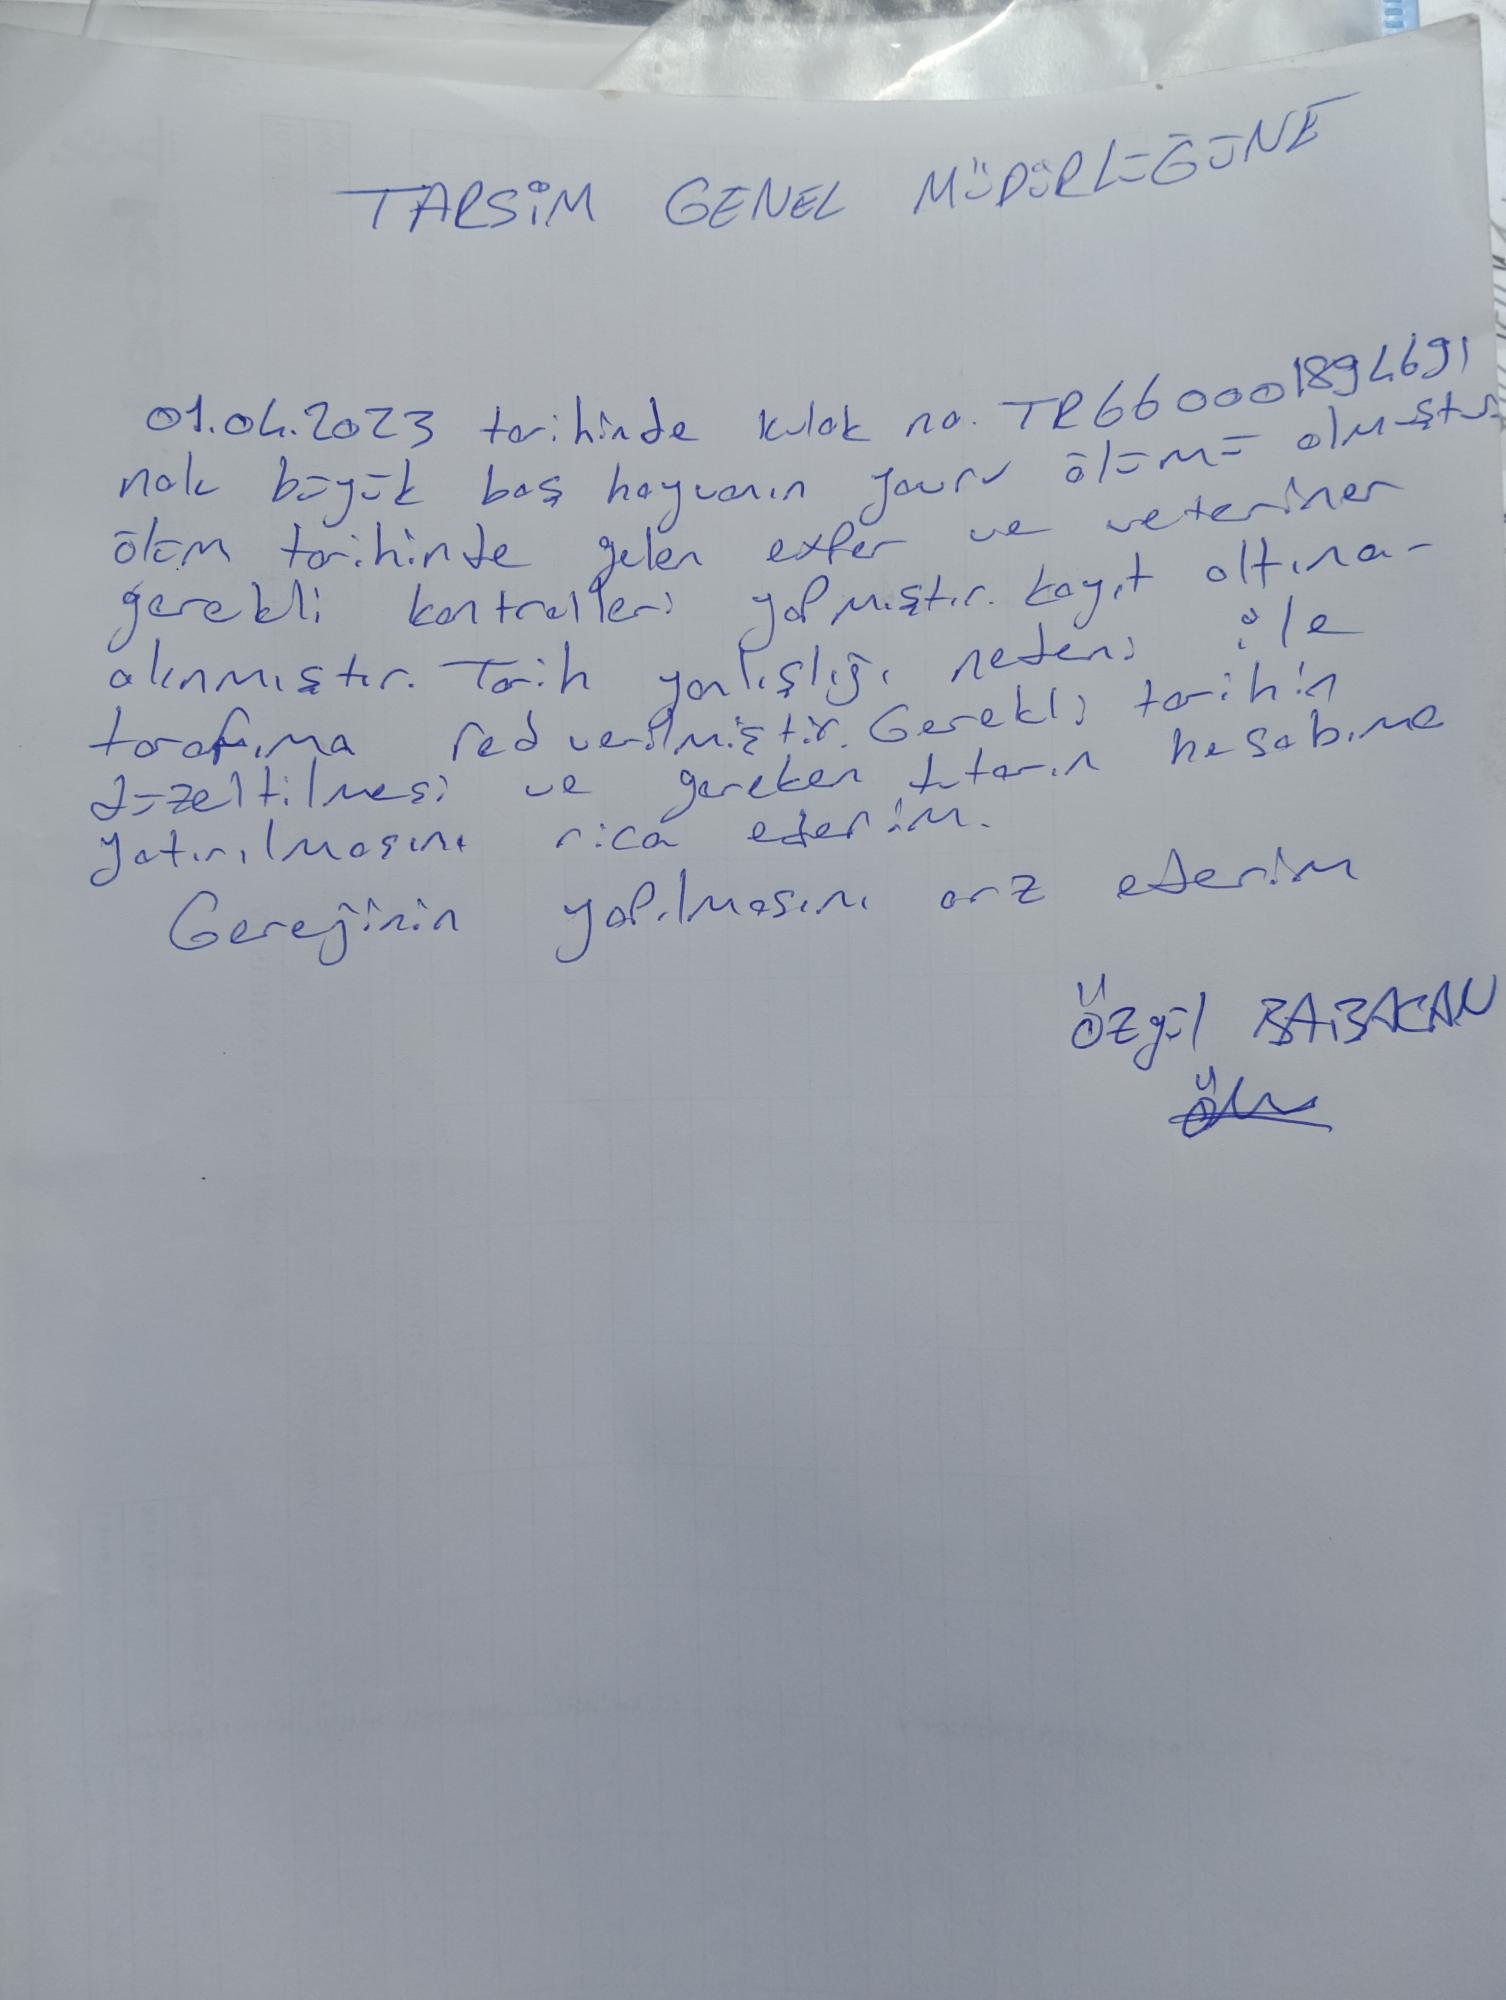 TARSİM GENEL MÜDÜRLÜĞÜNE
01.04.2023 tarihinde kulak no. TR660001894691
nolu büyük baş hayvanın yavru ölümü olmuştur.
ölüm tarihinde gelen exper ve veteriner
gerekli kontrolleri yapmıştır. kayıt altına-
alınmıştır. Tarih yanlışlığı nedeni ile
tarafıma red verilmiştir. Gerekli tarihin
düzeltilmesi ve gereken tutarın hesabıma
yatırılmasını rica ederim.
Gereğinin yapılmasını arz ederim
Özgül BABACAN